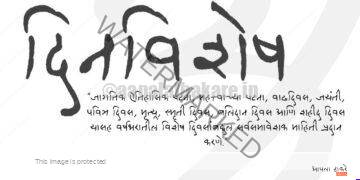 दिनविशेष
WATERMARKED
"जागतिक ऐतिहासिक घटना, महत्वाच्या घटना, वाढदिवस, जयंती,
पवित्र दिवस, मृत्यू, स्मृती दिवस, बलिदान दिवस आणि शहीद दिवस
यासह वर्षभरातील विशेष दिवसांबद्दल सर्वसमावेशक माहिती प्रदान
करणे.
This image is protected
आपला ठाकरे